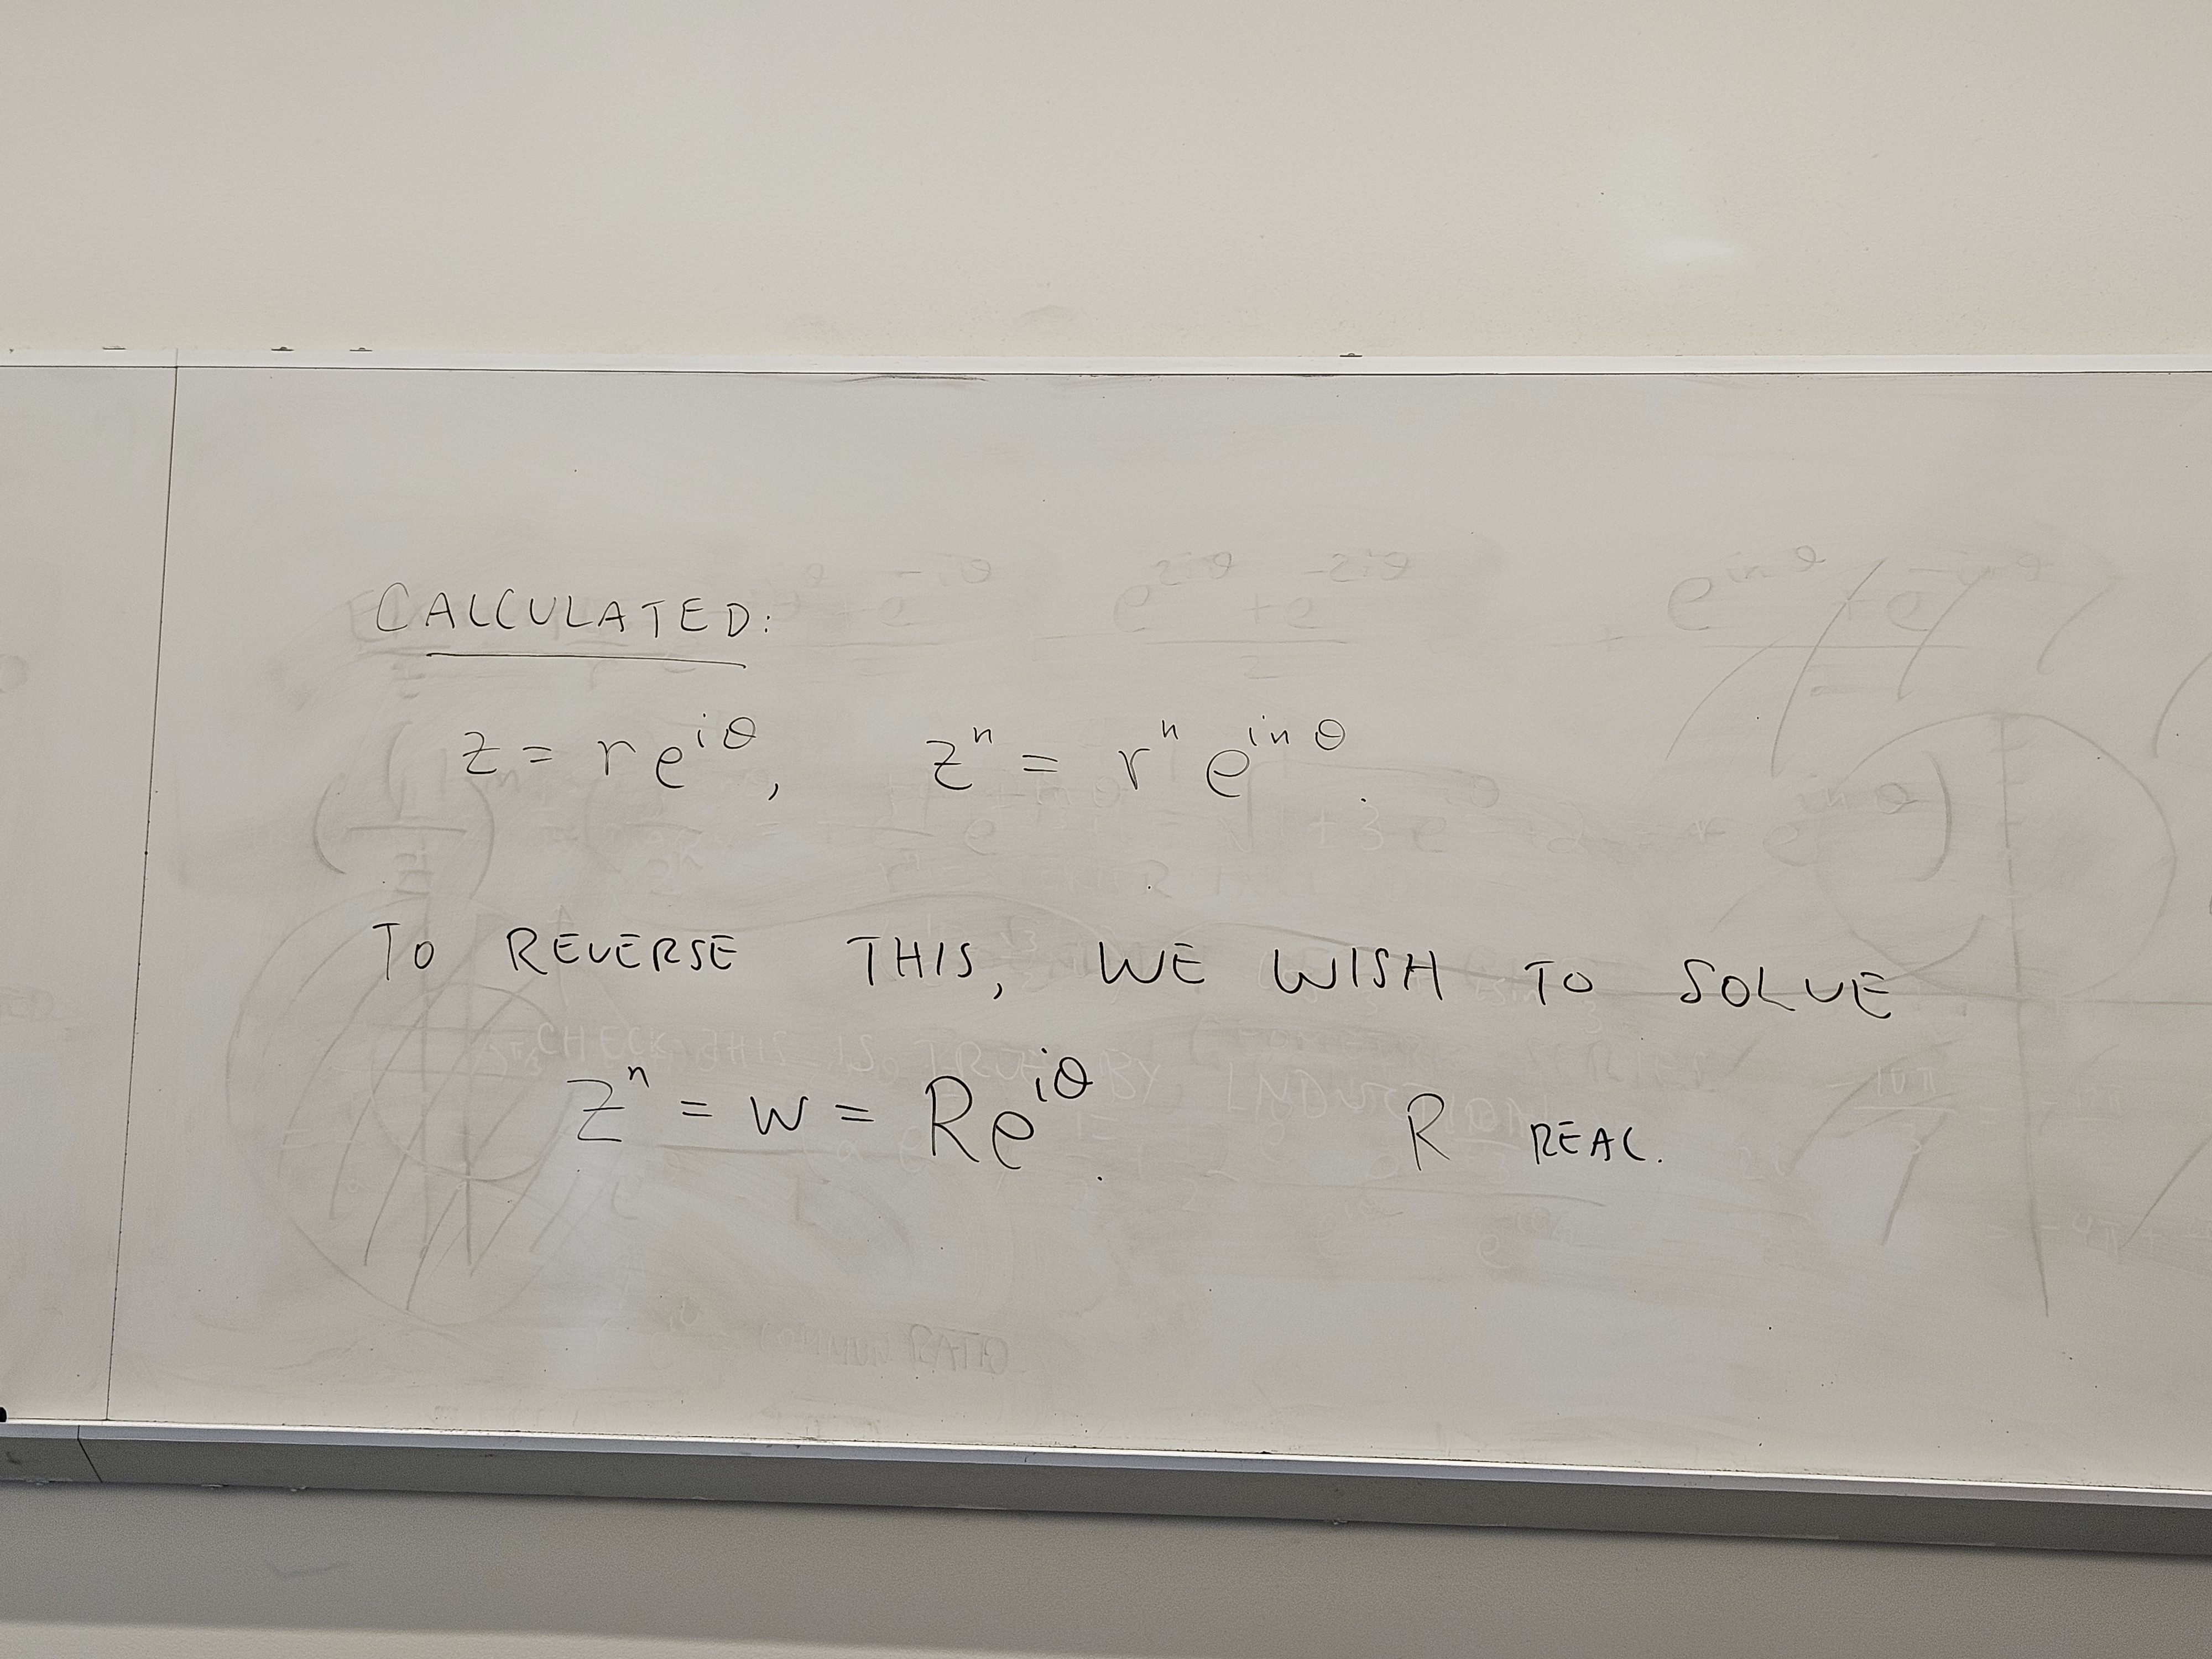 CALCULATED:
z = re^{iθ}, z^n = r^n e^{inθ}.
TO REVERSE THIS, WE WISH TO SOLVE
z^n = w = Re^{iθ}. R REAL.